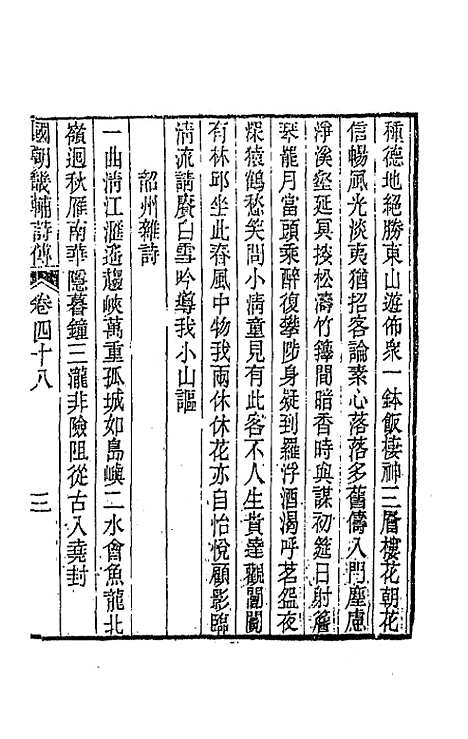 種德地絕勝東山遊佈衆一鉢飯棲神三層樓花朝花
信暢風光淡夷猶招客論素心落落多舊儔入門塵慮
淨溪壑延冥搜松濤竹籜間暗香時與謀初筵日射簷
琴罷月當頭乘醉復攀陟身疑到羅浮酒渴呼茗盌夜
深猿鶴愁笑問小淸童見有此客不人生貴達觀闤闠
有林邱坐此春風中物我兩休休花亦自怡悅顧影臨
淸流請賡白雪吟導我小山謳
韶州雜詩
一曲淸江滙遙趨峽萬重孤城如島嶼二水會魚龍北
嶺迴秋雁南華隱暮鐘三瀧非險阻從古入堯封
國朝畿輔詩傳 卷四十八 三